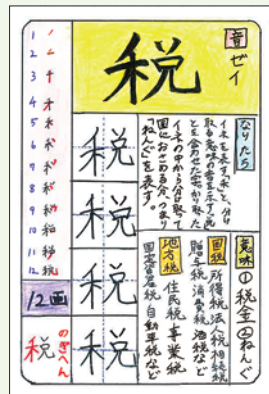 税
音
ゼイ
なりたち
イネを表す「禾」と、分け
取る意味の音を示す「兌」
とを合わせた字。かり取った
イネの中から分け取って
国におさめる分、つまり
「ねんぐ」を表す。
意味
①税金②ねんぐ
国税
所得税 法人税 相続税
贈与税 消費税 酒税など
地方税
住民税 事業税
固定資産税 自動車税など
税
税
税
税
1
2
3
4
5
6
7
8
9
10
11
12
12画
のぎへん
税